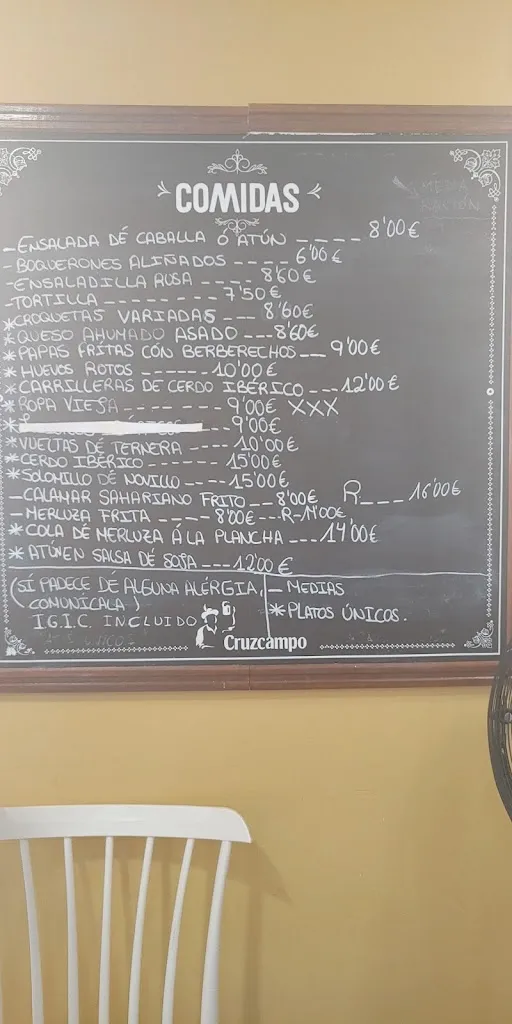 COMIDAS
MEDIA
RACIÓN
- ENSALADA DÉ CABALLA Ó ATÚN ---- 8'00€
- BOQUERONES ALIÑADOS ---- 6'00€
- ENSALADILLA RUSA ---- 8'60€
- TORTILLA -------- 7'50€
* CROQUETAS VARIADAS ---- 8'60€
* QUESO AHUMADO ASADO --- 8'60€
* PAPAS FRITAS CÓN BERBERECHOS --- 9'00€
* HUEVOS ROTOS ------ 10'00€
* CARRILLERAS DE CERDO IBÉRICO --- 12'00€
* ROPA VIEJA ------- 9'00€ XXX
* --- 9'00€
* VUELTAS DE TERNERA ---- 10'00€
* CERDO IBÉRICO ----- 15'00€
* SOLOMILLO DÉ NOVILLO ---- 15'00€
- CALAMAR SAHARIANO FRITO --- 8'00€ R---- 16'00€
- MERLUZA FRITA ---- 8'00€ --- R-11'00€
* COLA DÉ MERLUZA Á LA PLANCHA --- 14'00€
* ATÚN EN SALSA DÉ SOJA --- 12'00€
(SÍ PADECE DÉ ALGUNA ALÉRGIA, - MEDIAS
COMUNICALA) * PLATOS ÚNICOS.
I.G.I.C. INCLUIDO
Cruzcampo